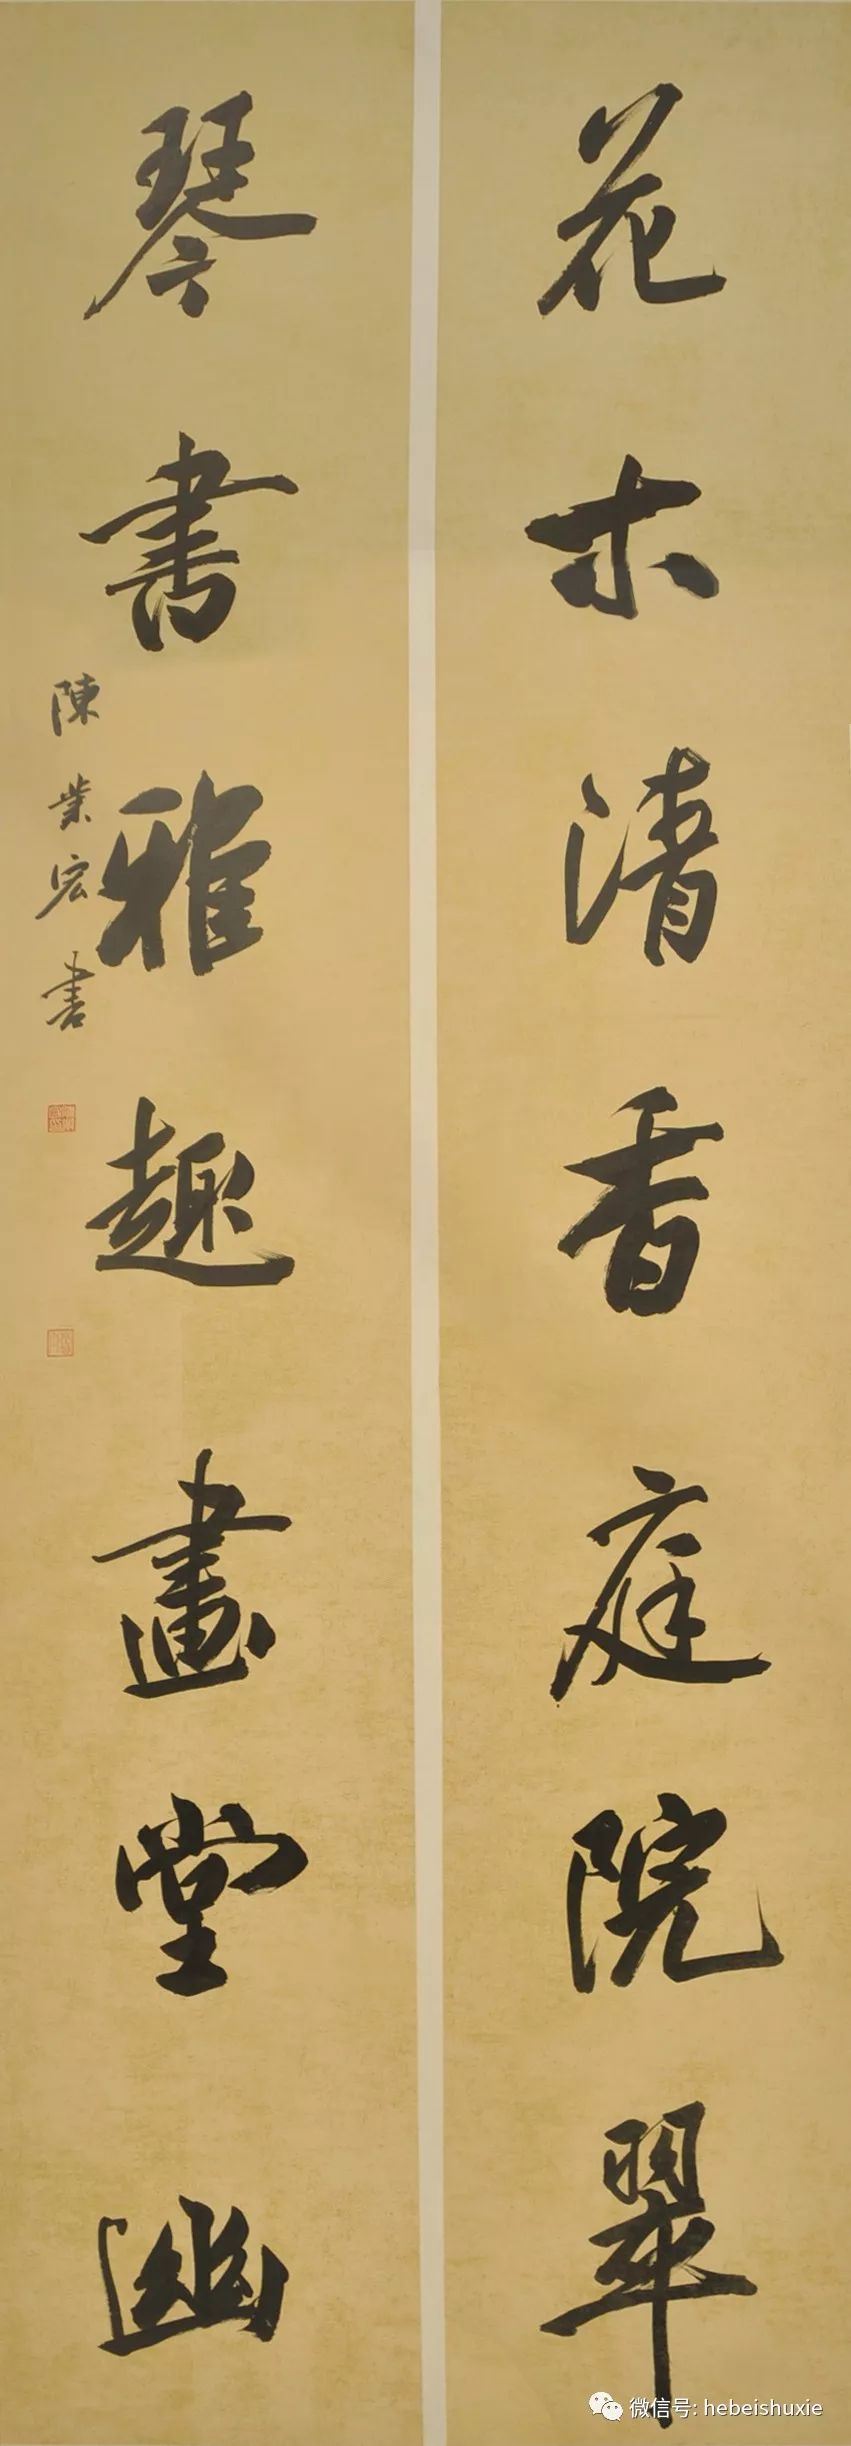 花木清香庭院翠
琴書雅趣畫堂幽
陳業宏書
微信号: hebeishuxie